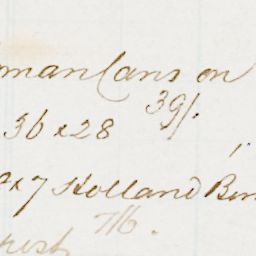 man Cans on
39/.
36 x 28
x 7 Holland Bin
7/6.